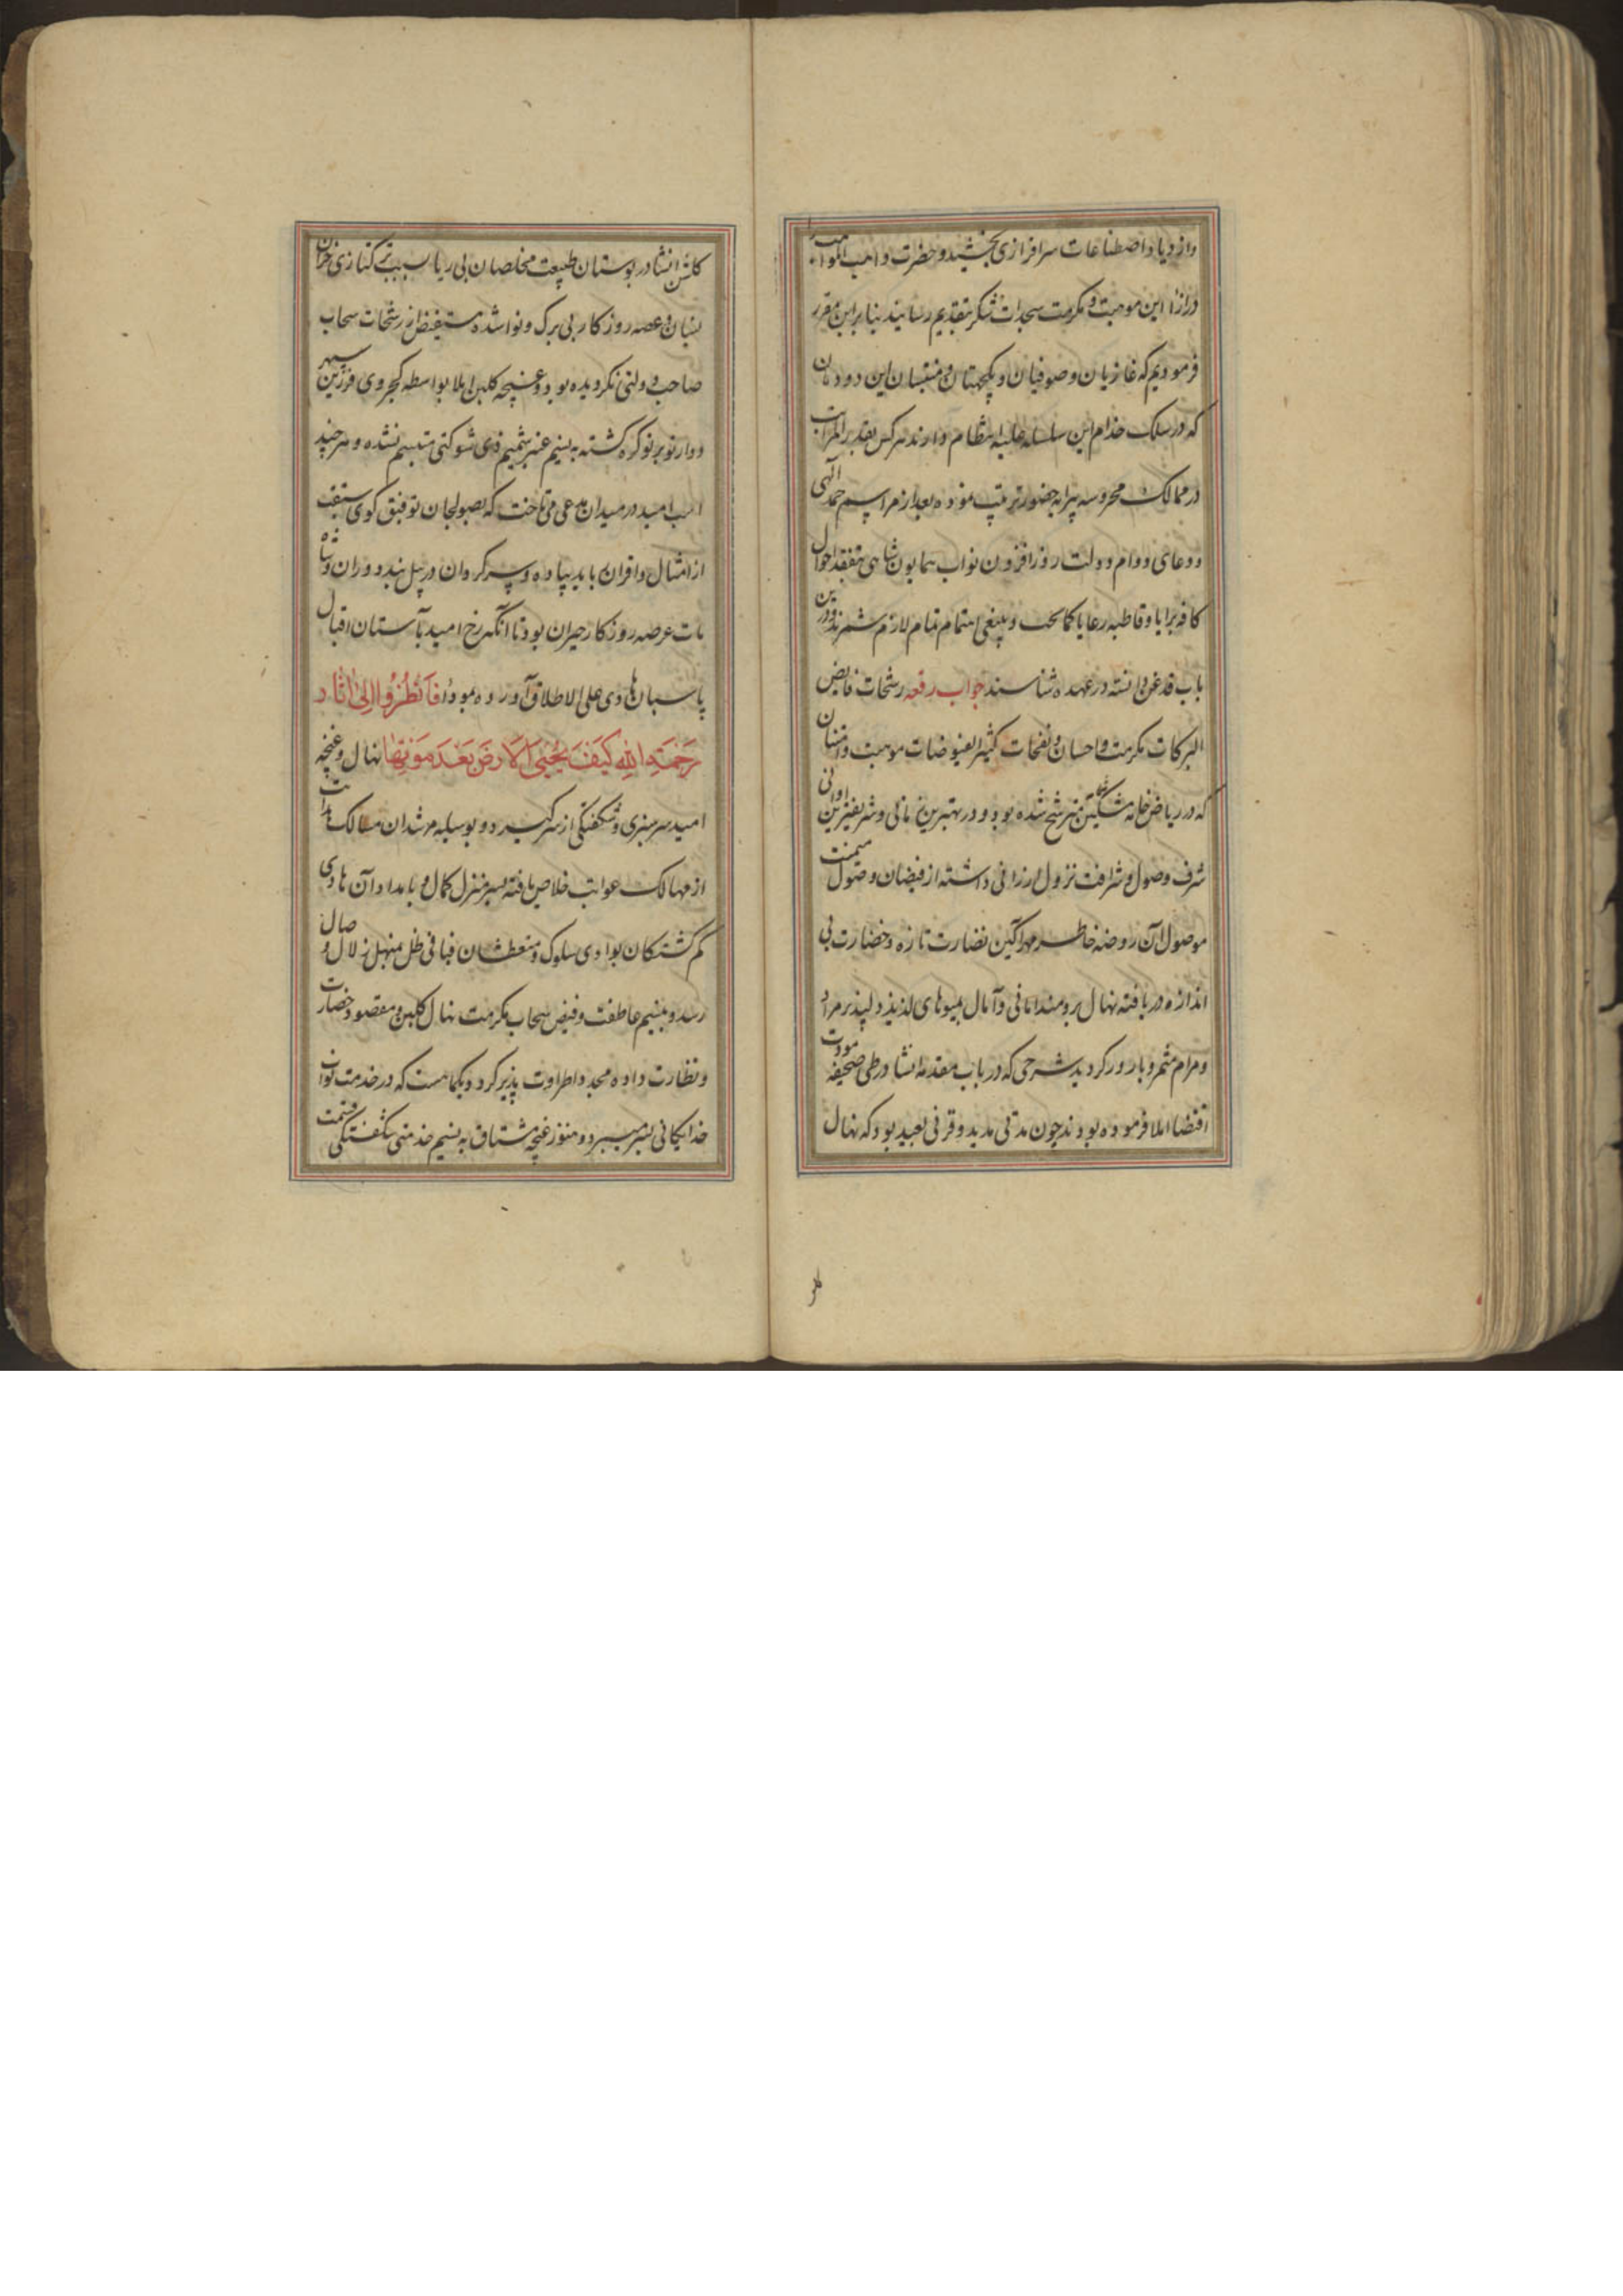 وازدیاد اصطناعات سرافرازی بخشیده حضرت واهب المواهب
درازاء این موهبت و مکرمت سجدات شکر بتقدیم رسانیدند بنابرین مقرر
فرمودیم که غازیان و صوفیان و یکجهتان و منتسبان این دودمان
که در سلک خدام این سلسله علیه انتظام دارند هرکس بقدر المراتب
در ممالک محروسه پیرایه حضور ترتیب نموده بعد از مراسم حمد الهی
و دعای دوام دولت روزافزون نواب همایون شاهی متفقد احوال
کافه برایا و قاطبه رعایا کما یحب و ینبغی اهتمام تمام لازم شمرند و درین
باب قدغن دانسته در عهده شناسند جواب رقعه رشحات فایض
البرکات مکرمت و احسان و نفحات کثیر الفیوضات موهبت و امتنان
که در ریاض خامه مشکین مترشح شده بود و در بهترین زمانی و شریفترین اوانی
شرف وصول و شرافت نزول ارزانی داشته از فیضان وصول میمنت
موصول آن روضه خاطر مهرآگین نضارت تازه و خضارت بی
اندازه دریافته نهال برومند امانی و آمال بمیوهای لذیذ دلپذیر مراد
و مرام مثمر و بارور گردید شرحی که در باب مقدمه انشا در طی صحیفه مودت
اقتضا املا فرموده بودند چون مدتی مدید و قرنی بعید بود که نهال
گلشن انشا در بوستان طبیعت مخلصان بی ریا بسبب ترکتازی خزان
و غصه روزگار بی برگ و نوا شده مستفیض از رشحات سحاب
صاحب دولتی نگردیده بود و غنچه گلبن املا بواسطه کجروی فرزین سپهر
دوار تو بر تو گره گشته به نسیم عنبر شمیم ذی شوکتی متبسم نشده و هرچند
اسب امید در میدان مدعی می تاخت که بصولجان توفیق گوی سبقت
از امثال و اقران باید پیاده و سرگردان در پیل بند دوران و شاه
مات عرصه روزگار حیران بود تا آنکه رخ امید بآستان اقبال
پاسبان هادی علی الاطلاق آورده مودای فَانْظُرُوا اِلیٰ اٰثَارِ
رَحْمَتِ اللهِ کَیْفَ یُحْیِی الْاَرْضَ بَعْدَ مَوْتِهَا نهال و غنچه
امید سرسبزی و شکفتگی از سر گیرد و بوسیله مرشدان مسالک هدایت
از مهالک خلاص یافته بسر منزل کمال و بامداد آن هادی
گم گشتگان بوادی سلوک و متعطشان فیافی ظل منهل زلال وصال
رسد و بنسیم عاطفت و فیض سحاب مکرمت نهال گلبن مقصود خضارت
و نظارت داده مجددا طراوت پذیر گردد یکماهست که در خدمت نواب
خدایگانی بسر میبرد و هنوز غنچه مشتاق به نسیم خدمتی شکفتگی
گلشن